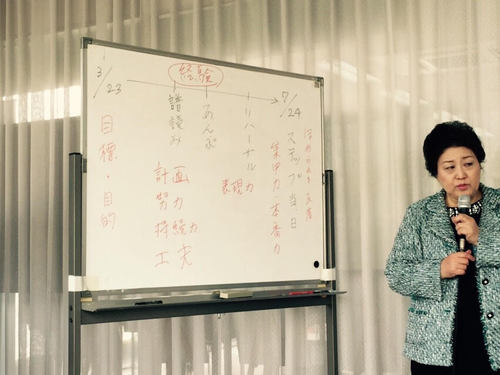 経験
3/23
7/24
譜読み
あんぷ
リハーサル
ステップ当日
目標・目的
計画
努力
持続力
工夫
表現力
集中力 本番力